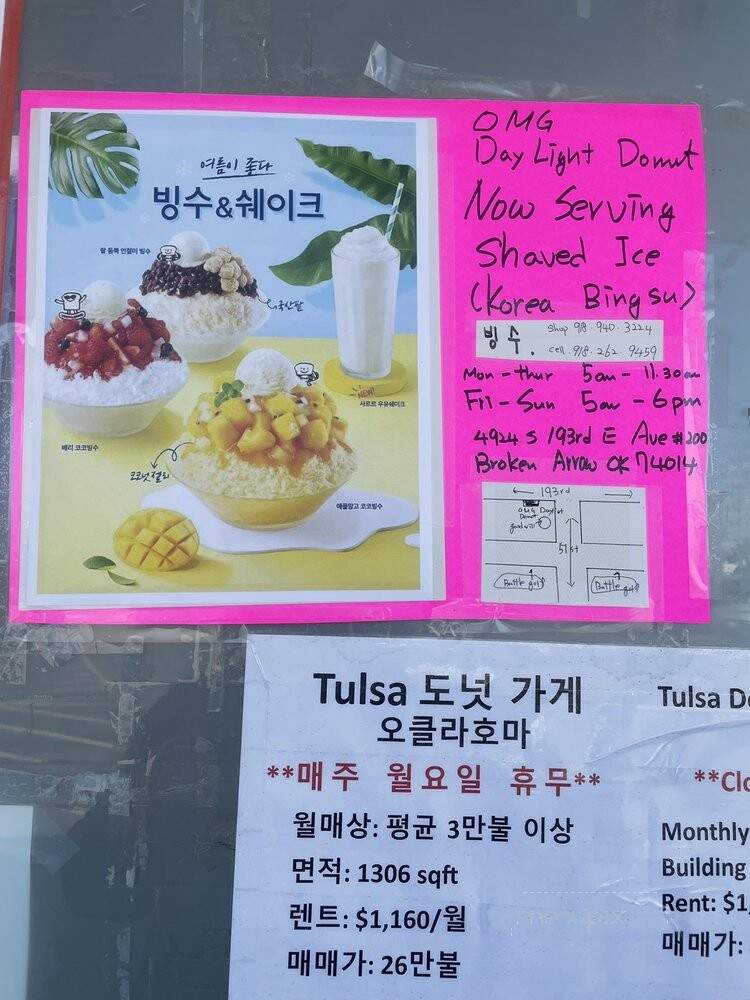 여름이 좋다
빙수&쉐이크
팥 듬뿍 인절미 빙수
국산팥
NEW!
사르르 우유쉐이크
베리 코코빙수
코코넛 젤리
애플망고 코코빙수
OMG
Day Light Donut
Now Serving
Shaved Ice
(Korea Bingsu)
빙수. shop 918.940.3224
cell.918.262.9459
Mon - thur 5am - 11.30am
Fri - Sun 5am - 6pm
4924 S 193rd E Ave #200
Broken Arrow OK 74014
193rd
OMG Daylight
Donut
51st
Tulsa 도넛 가게
오클라호마
**매주 월요일 휴무**
월매상: 평균 3만불 이상
면적: 1306 sqft
렌트: $1,160/월
매매가: 26만불
Tulsa Do
**Clo
Monthly
Building
Rent: $1,
매매가: